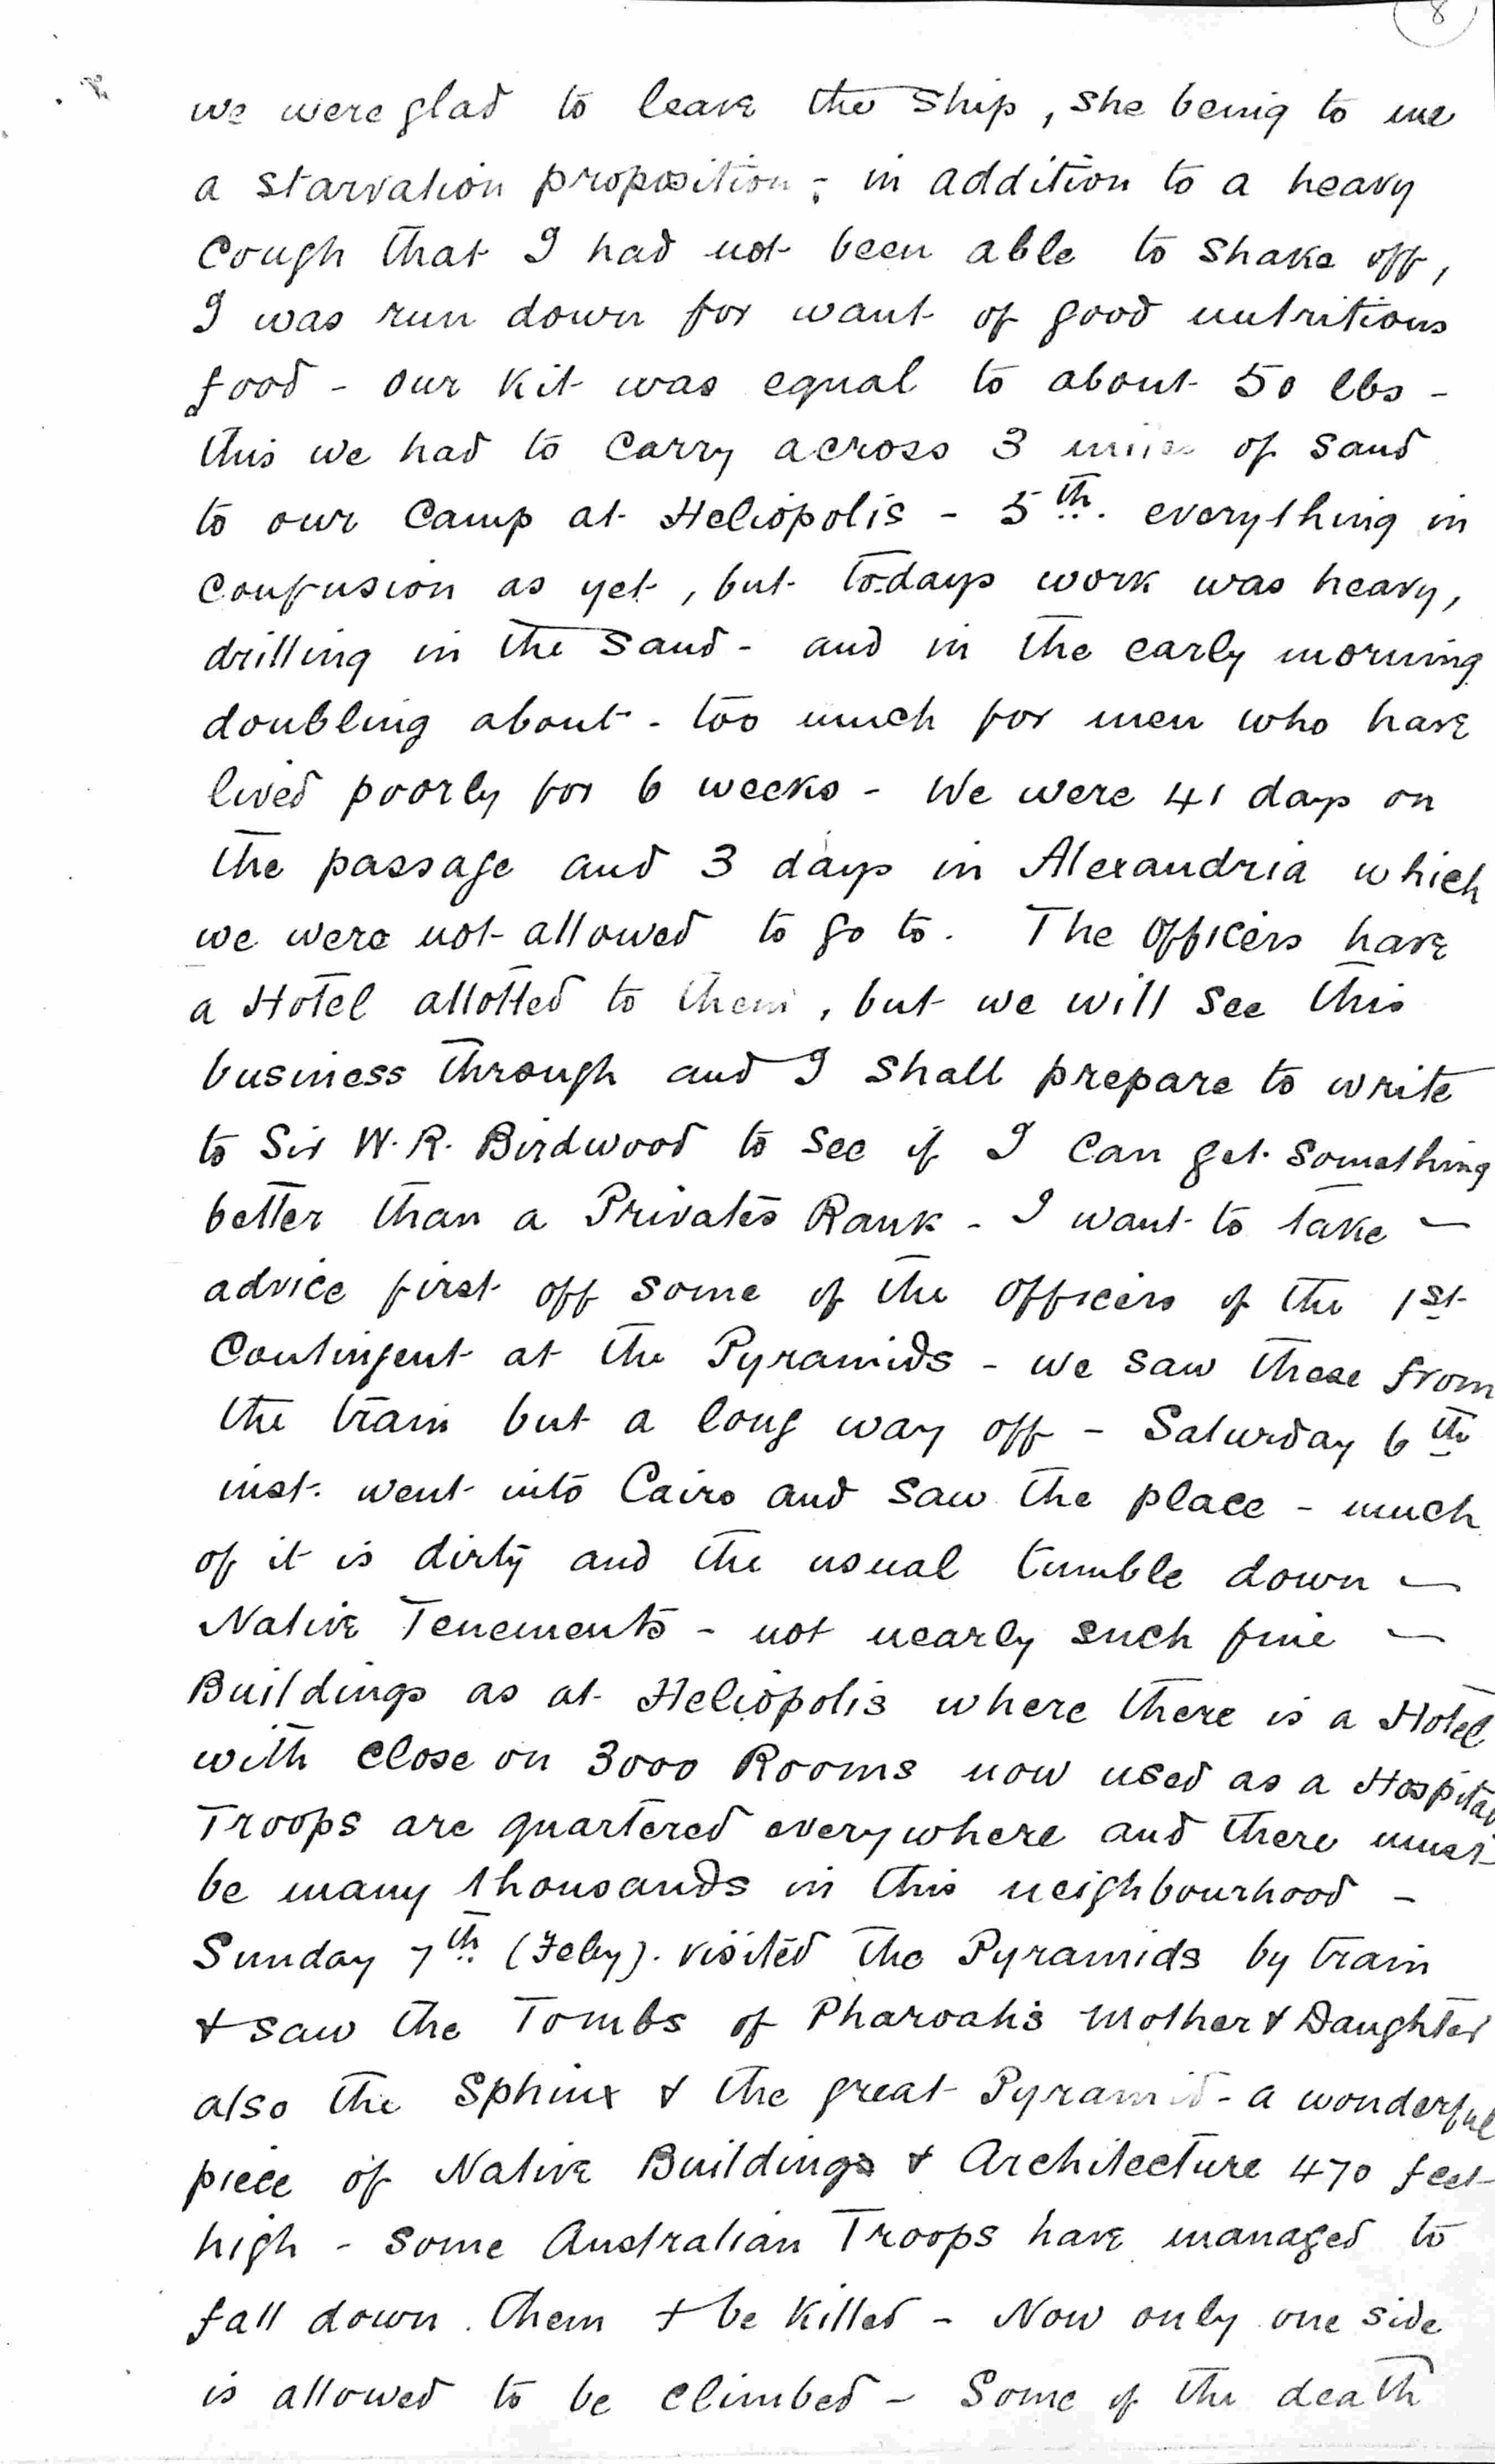 8
we were glad to leave the ship, she being to me
a starvation proposition; in addition to a heavy
cough that I had not been able to shake off,
I was run down for want of good nutritious
food - our kit was equal to about 50 lbs -
this we had to carry across 3 miles of sand
to our Camp at Heliopolis - 5th. everything in
confusion as yet, but to-days work was heavy,
drilling in the sand - and in the early morning
doubling about - too much for men who have
lived poorly for 6 weeks - We were 41 days on
the passage and 3 days in Alexandria which
we were not allowed to go to. The Officers have
a Hotel allotted to them, but we will see this
business through and I shall prepare to write
to Sir W. R. Birdwood to see if I can get something
better than a Privates Rank - I want to take -
advice first off some of the Officers of the 1st
Contingent at the Pyramids - we saw these from
the train but a long way off - Saturday 6th
inst. went into Cairo and saw the place - much
of it is dirty and the usual tumble down -
Native Tenements - not nearly such fine -
Buildings as at Heliopolis where there is a Hotel
with close on 3000 Rooms now used as a Hospital
Troops are quartered everywhere and there must
be many thousands in this neighbourhood -
Sunday 7th (Feby). visited the Pyramids by train
& saw the Tombs of Pharoah's Mother & Daughter
also the Sphinx & the great Pyramid - a wonderful
piece of Native Buildings & Architecture 470 feet
high - some Australian Troops have managed to
fall down them & be killed - Now only one side
is allowed to be climbed - Some of the death